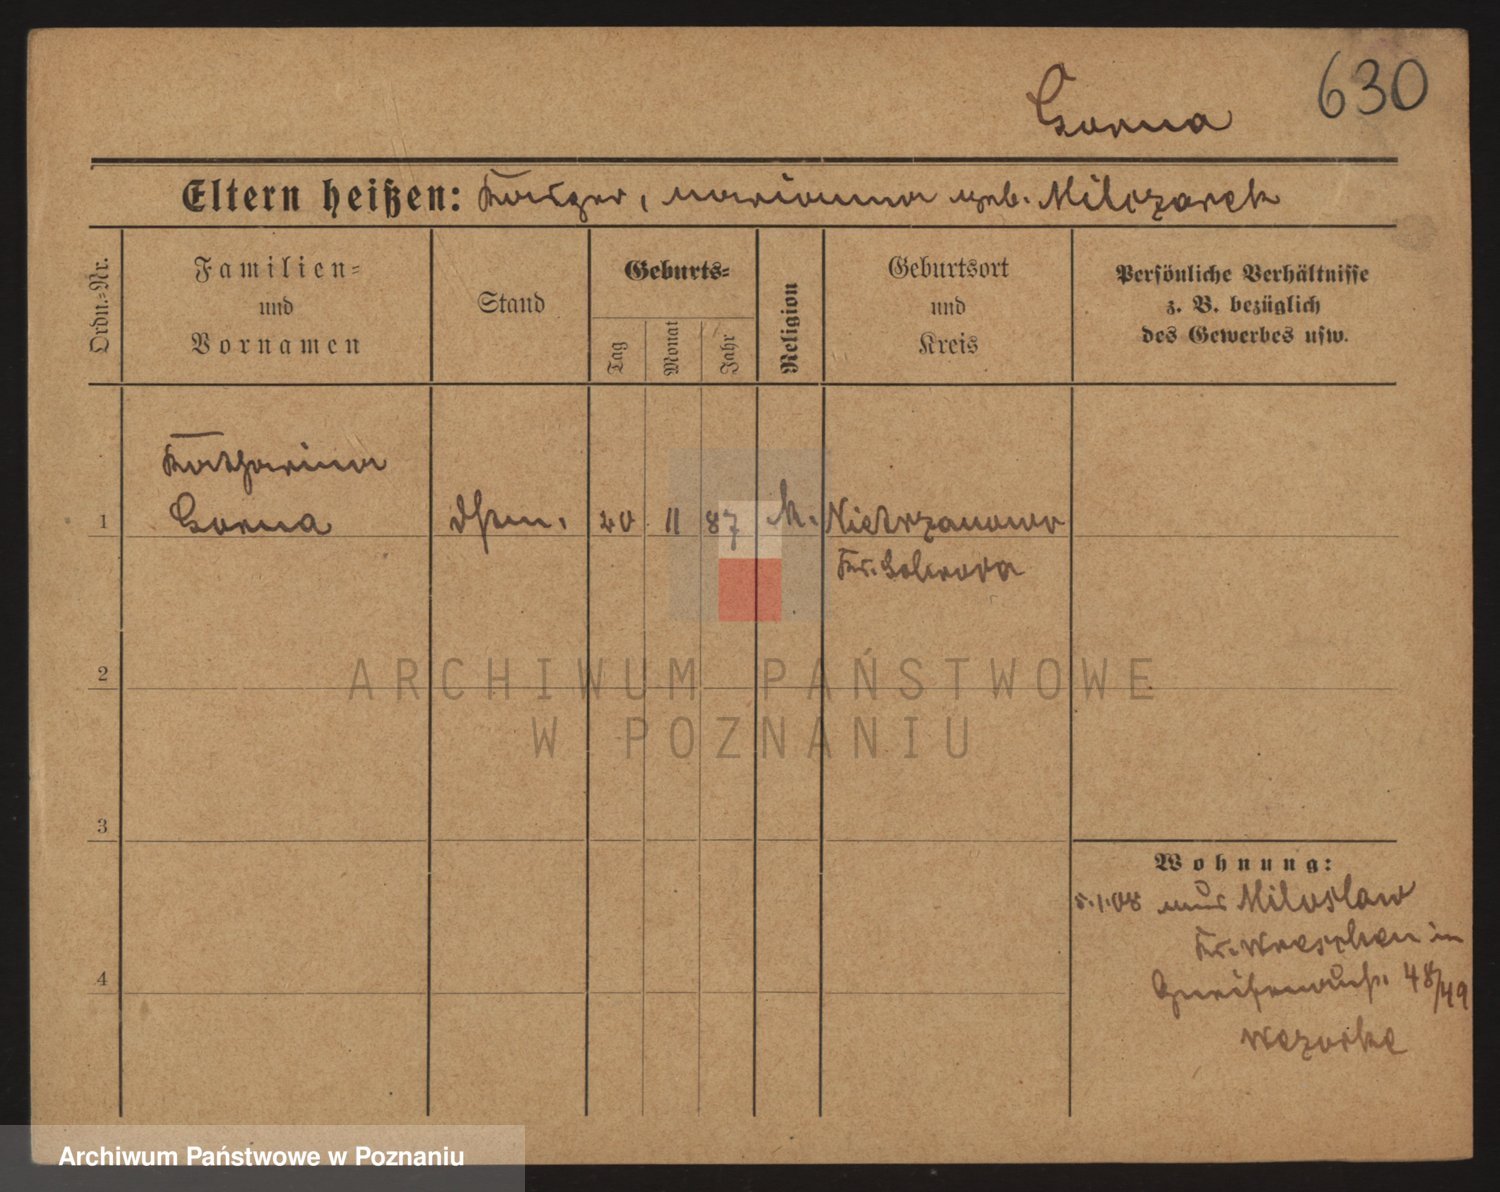 Gorna
630
Eltern heißen: Kasper, Marianna geb. Milczarek
Ordn.-Nr.
Familien-
und
Vornamen
Stand
Geburts-
Tag
Monat
Jahr
Religion
Geburtsort
und
Kreis
Persönliche Verhältnisse
z. B. bezüglich
des Gewerbes usw.
Katharina
1 Gorna 20 11 87 K. Nietrzanowo
Kr. Schroda
2
ARCHIWUM PAŃSTWOWE
W POZNANIU
3
Wohnung:
5.1.08 aus Miloslaw
Kr. Wreschen in
48/49
4
Archiwum Państwowe w Poznaniu